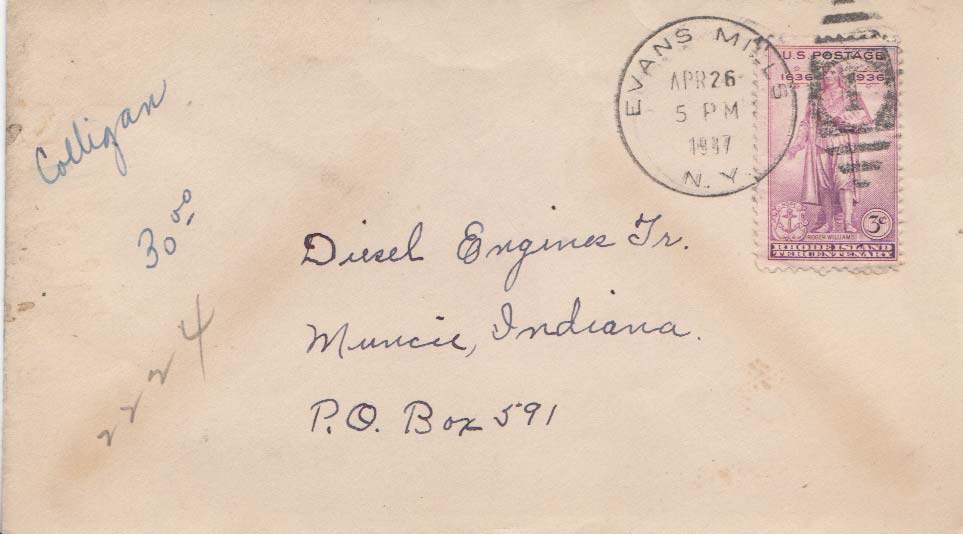 Colligan
30 00
224
EVANS MILLS
APR 26
5 PM
1937
N.Y.
U.S. POSTAGE
1636 1936
3c
ROGER WILLIAMS
RHODE ISLAND
TERCENTENARY
Diesel Engines Tr.
Muncie, Indiana.
P.O. Box 591